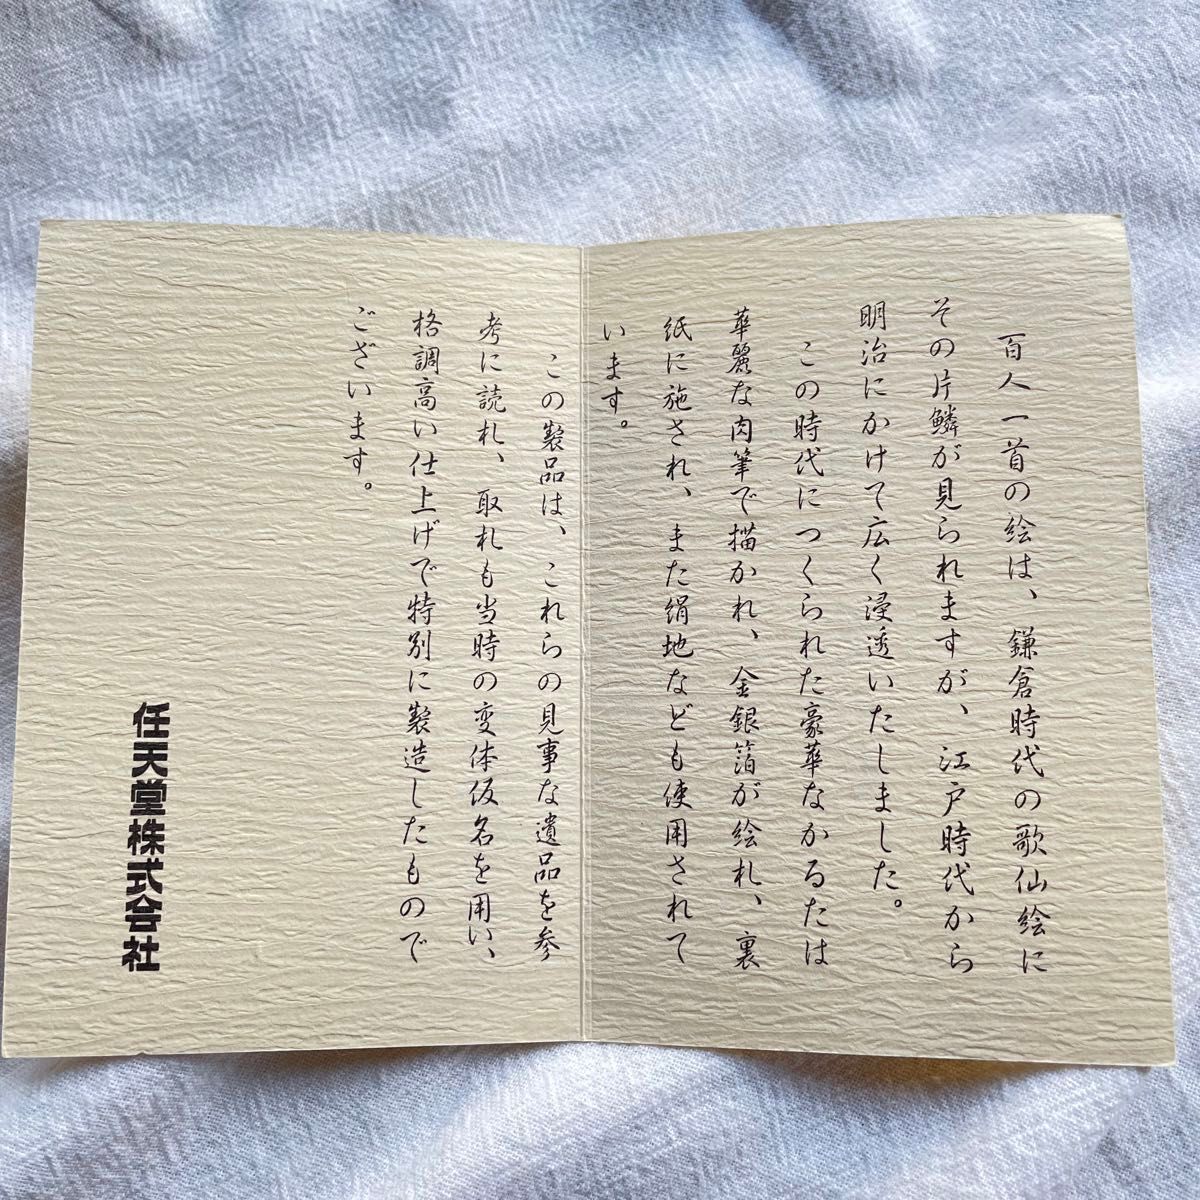 百人一首の絵は、鎌倉時代の歌仙絵に
その片鱗が見られますが、江戸時代から
明治にかけて広く浸透いたしました。
この時代につくられた豪華なかるたは
華麗な肉筆で描かれ、金銀箔が絵札、裏
紙に施され、また絹地なども使用されて
います。
この製品は、これらの見事な遺品を参
考に読札、取札も当時の変体仮名を用い、
格調高い仕上げで特別に製造したもので
ございます。
任天堂株式会社